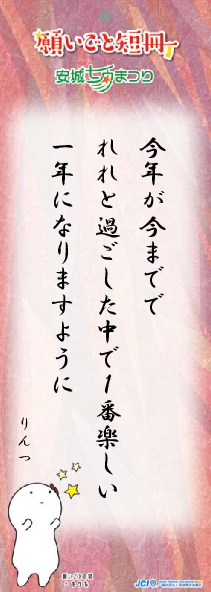 願いごと短冊
安城七夕まつり
今年が今までで
れれと過ごした中で1番楽しい
一年になりますように
りんつ
願いごと短冊
JCI